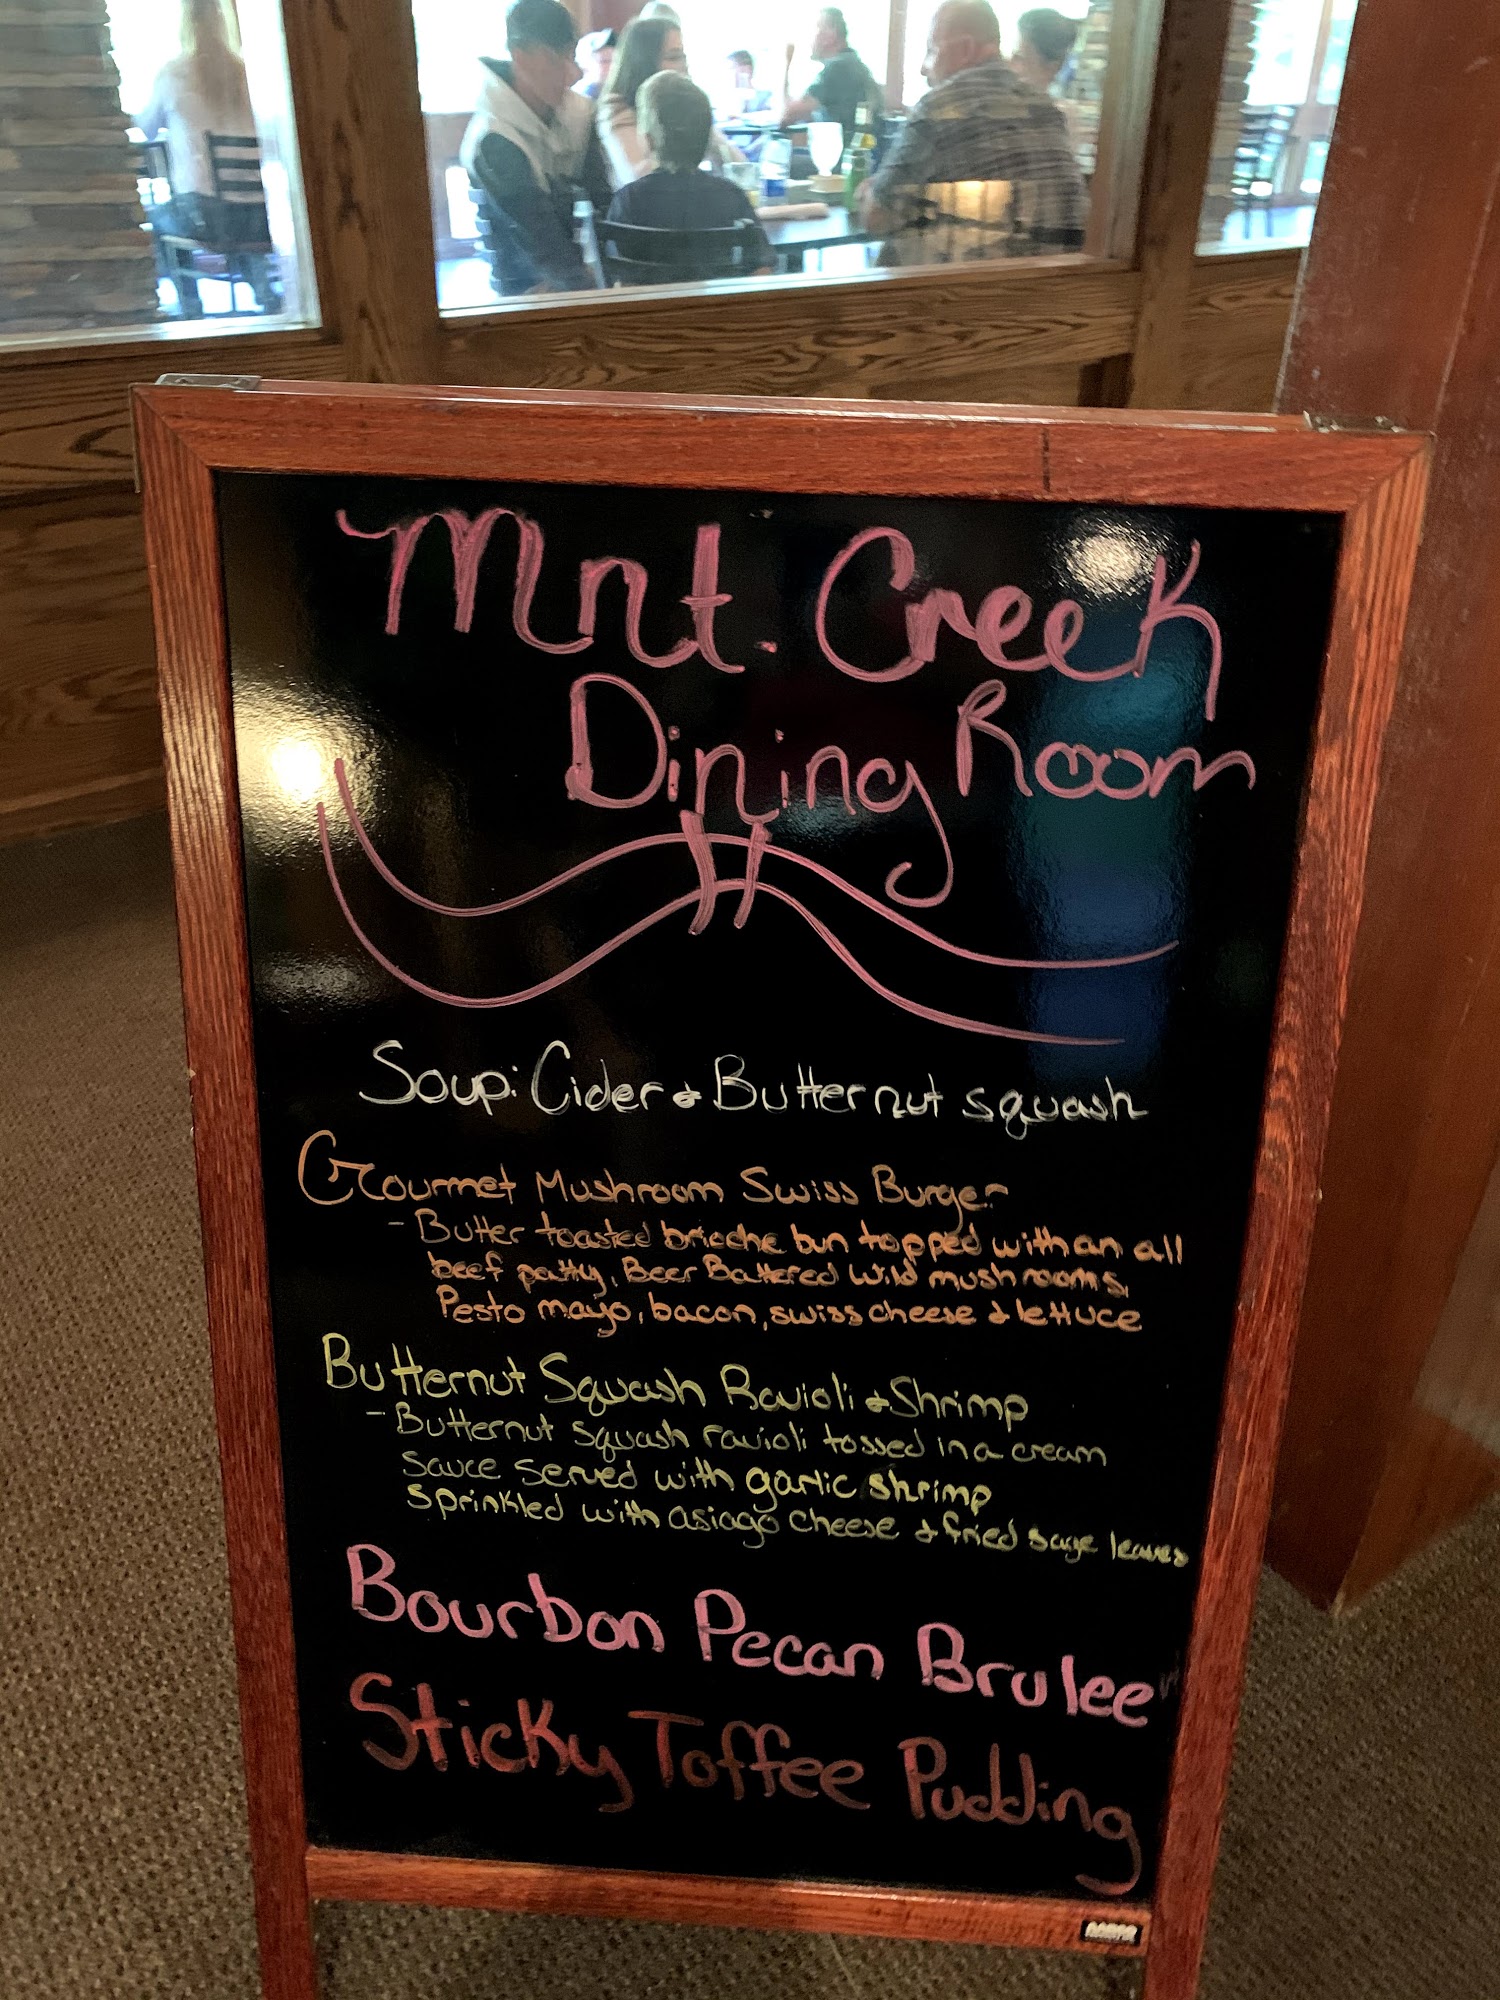 Mnt. Creek
Dining Room
Soup: Cider & Butternut squash
Gourmet Mushroom Swiss Burger
- Butter toasted brioche bun topped with an all
beef patty, Beer Battered wild mushrooms,
Pesto mayo, bacon, swiss cheese & lettuce
Butternut Squash Ravioli & Shrimp
- Butternut squash ravioli tossed in a cream
sauce served with garlic shrimp
sprinkled with asiago cheese & fried sage leaves
Bourbon Pecan Brulee
Sticky Toffee Pudding